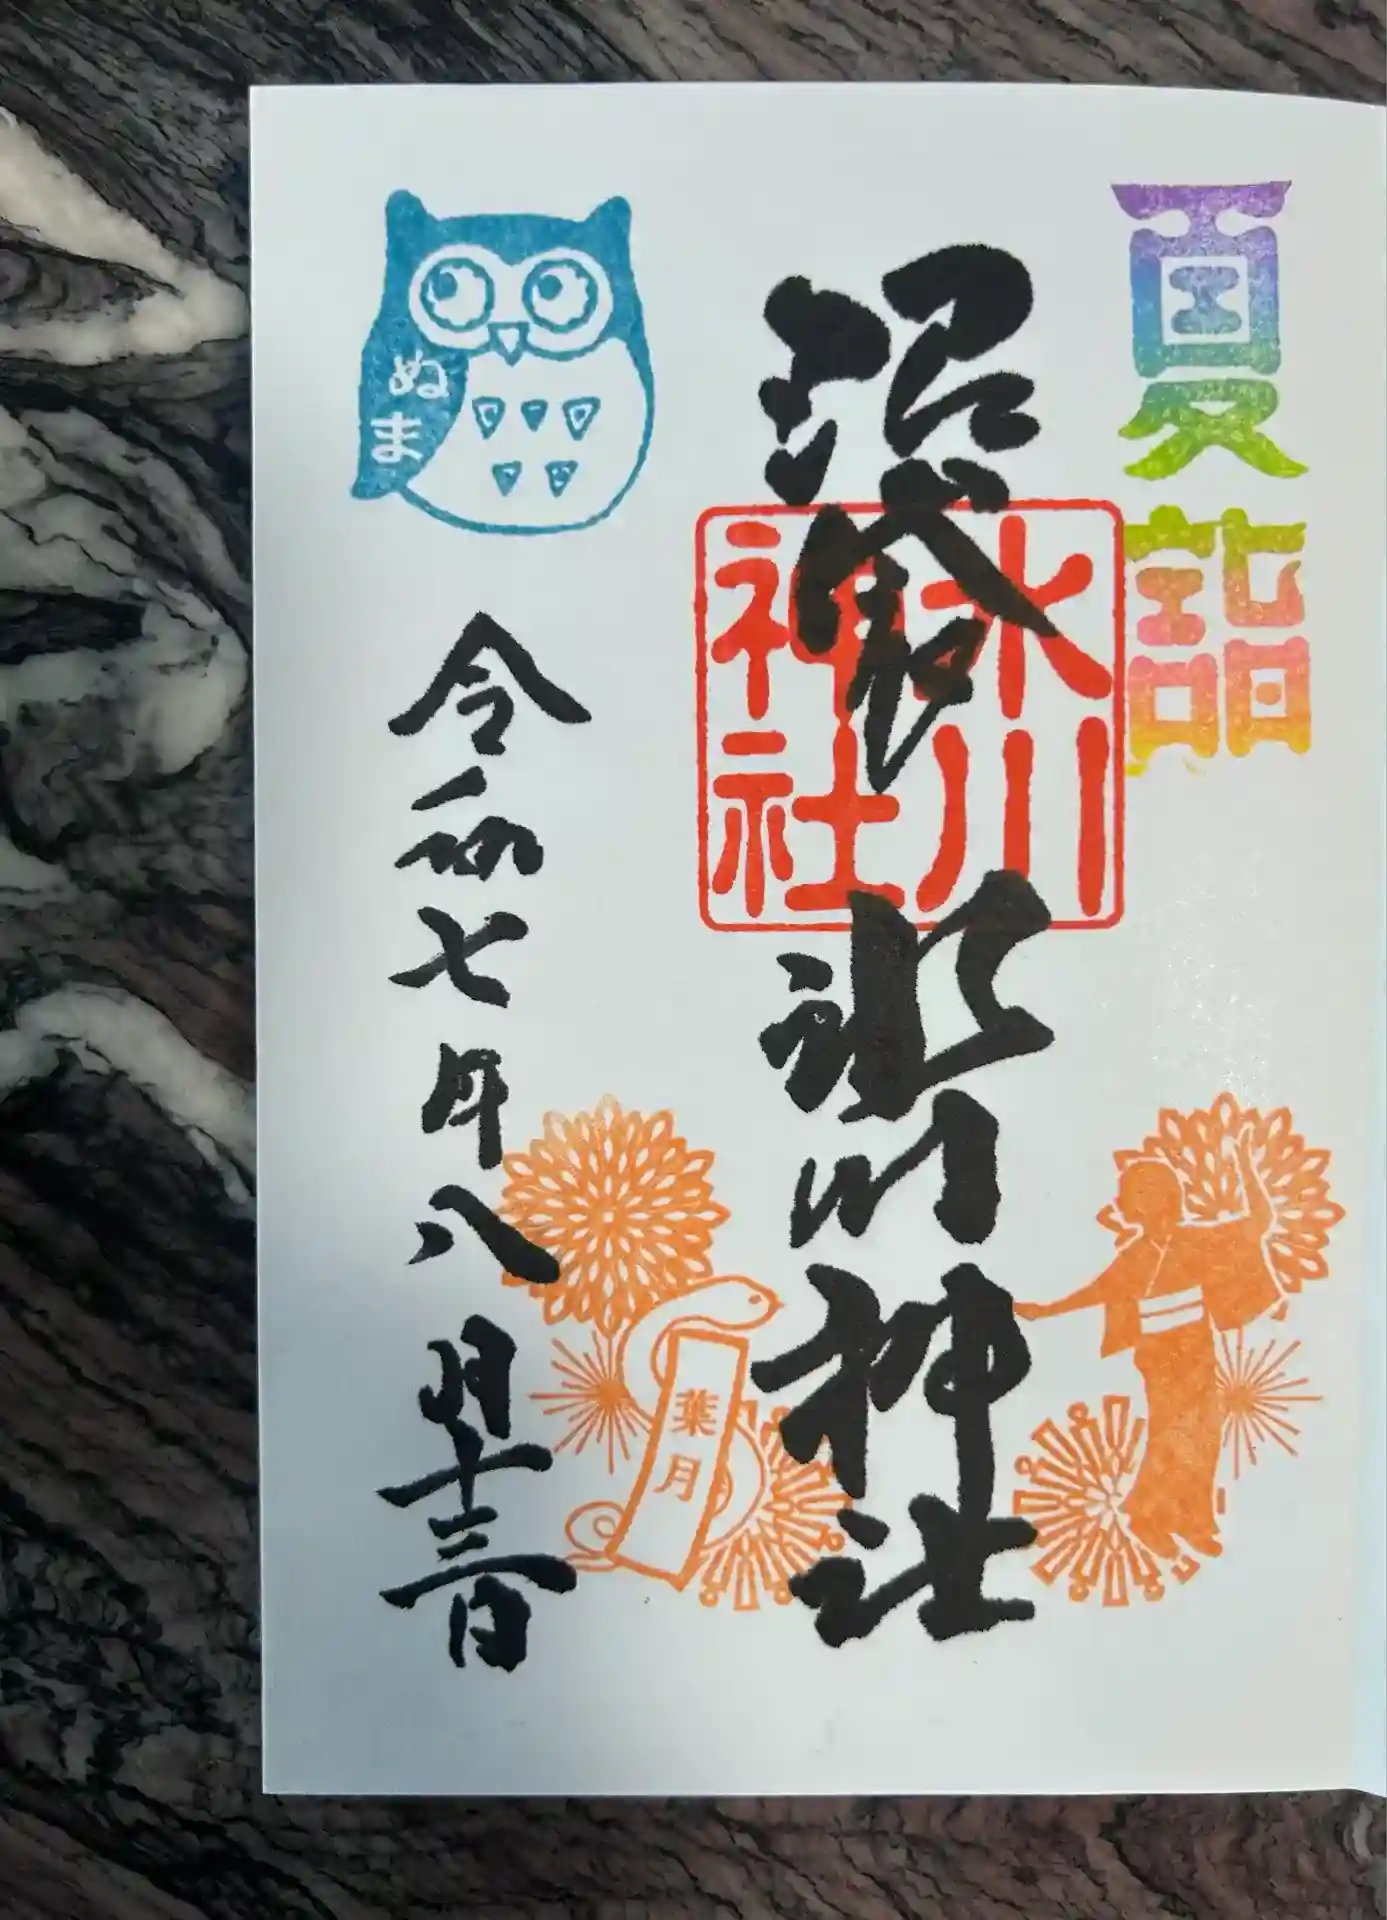 夏詣
沼袋氷川神社
氷川
神社
ぬま
令和七年八月十三日
葉月